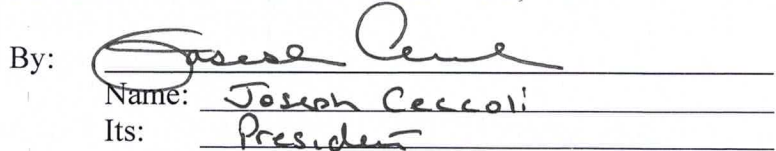 By: Joseph Ceccoli
Name: Joseph Ceccoli
Its: President